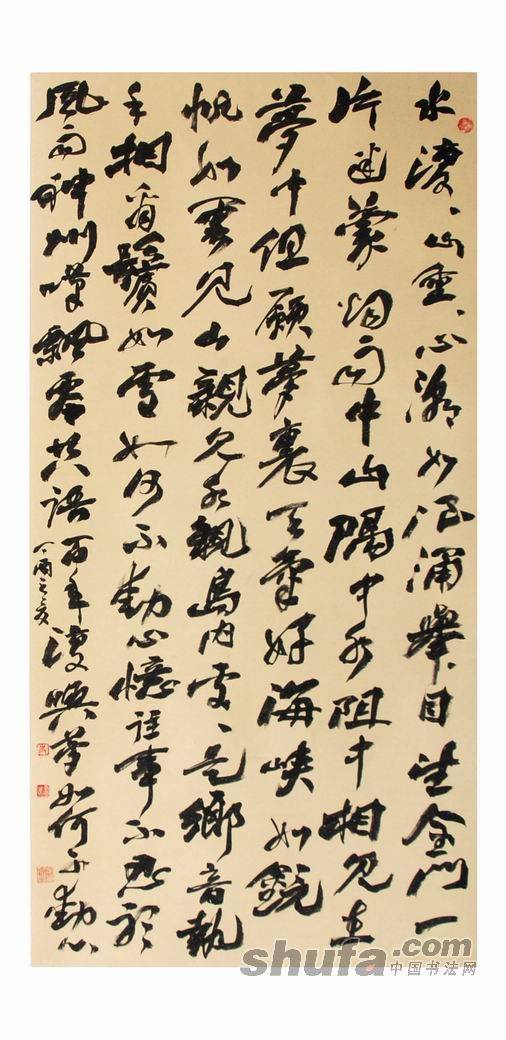 水復、山重、心潮如浪涌舉目望金門一
片迷蒙烟雨中山隔中水阻中相見在
夢中但願夢裏天氣好海峽如鏡
帆如雲見山親見水親島内處、是鄉音執
手相看鬢如雪如何不動心憶往事不忍聽
風雨神州嘆飄零共語百年復興夢如何不動心
丁酉之夏
shufa.com
中国书法网